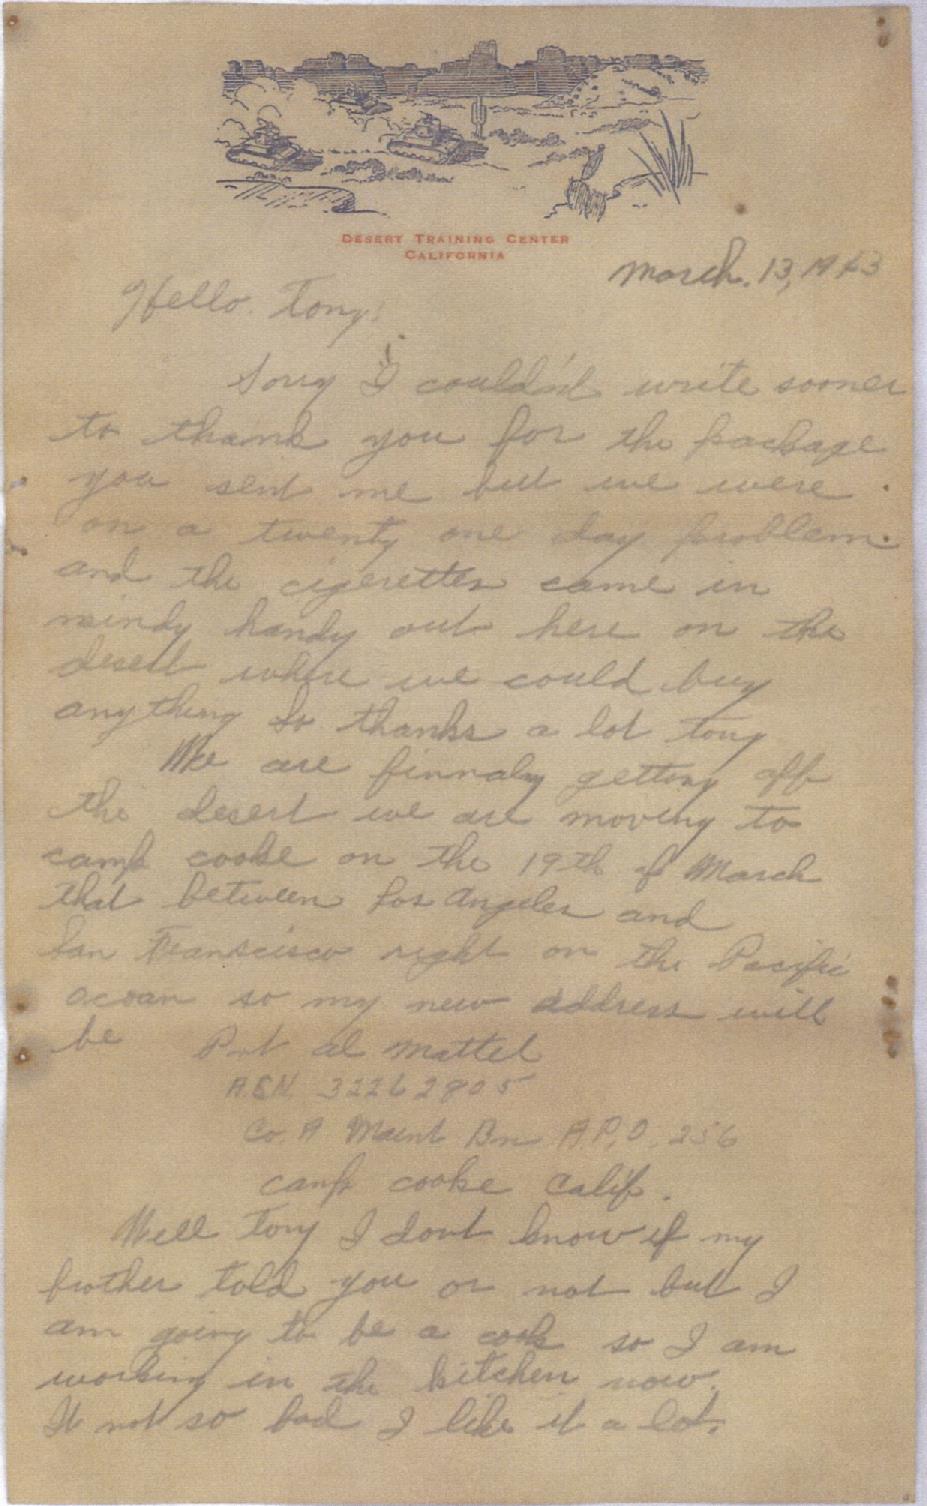 DESERT TRAINING CENTER
CALIFORNIA
March. 13, 1943
Hello. Tony!
Sorry I couldn't write sooner
to thank you for the package
you sent me but we were
on a twenty one day problem
and the cigerettes came in
handy out here on the
desert where we could buy
anything So thanks a lot Tony
We are finnaly getting off
the desert we are moving to
camp cooke on the 19th of March
that between Los Angeles and
San Francisco right on the Pacific
ocoan so my new address will
be Pvt al Mattel
A.S.N. 32262805
Co. A Maint Bn A.P.O. 256
camp cooke Calif.
Well Tony I dont know if my
brother told you or not but I
am going to be a cook so I am
working in the kitchen now.
It not so bad I like it a lot.